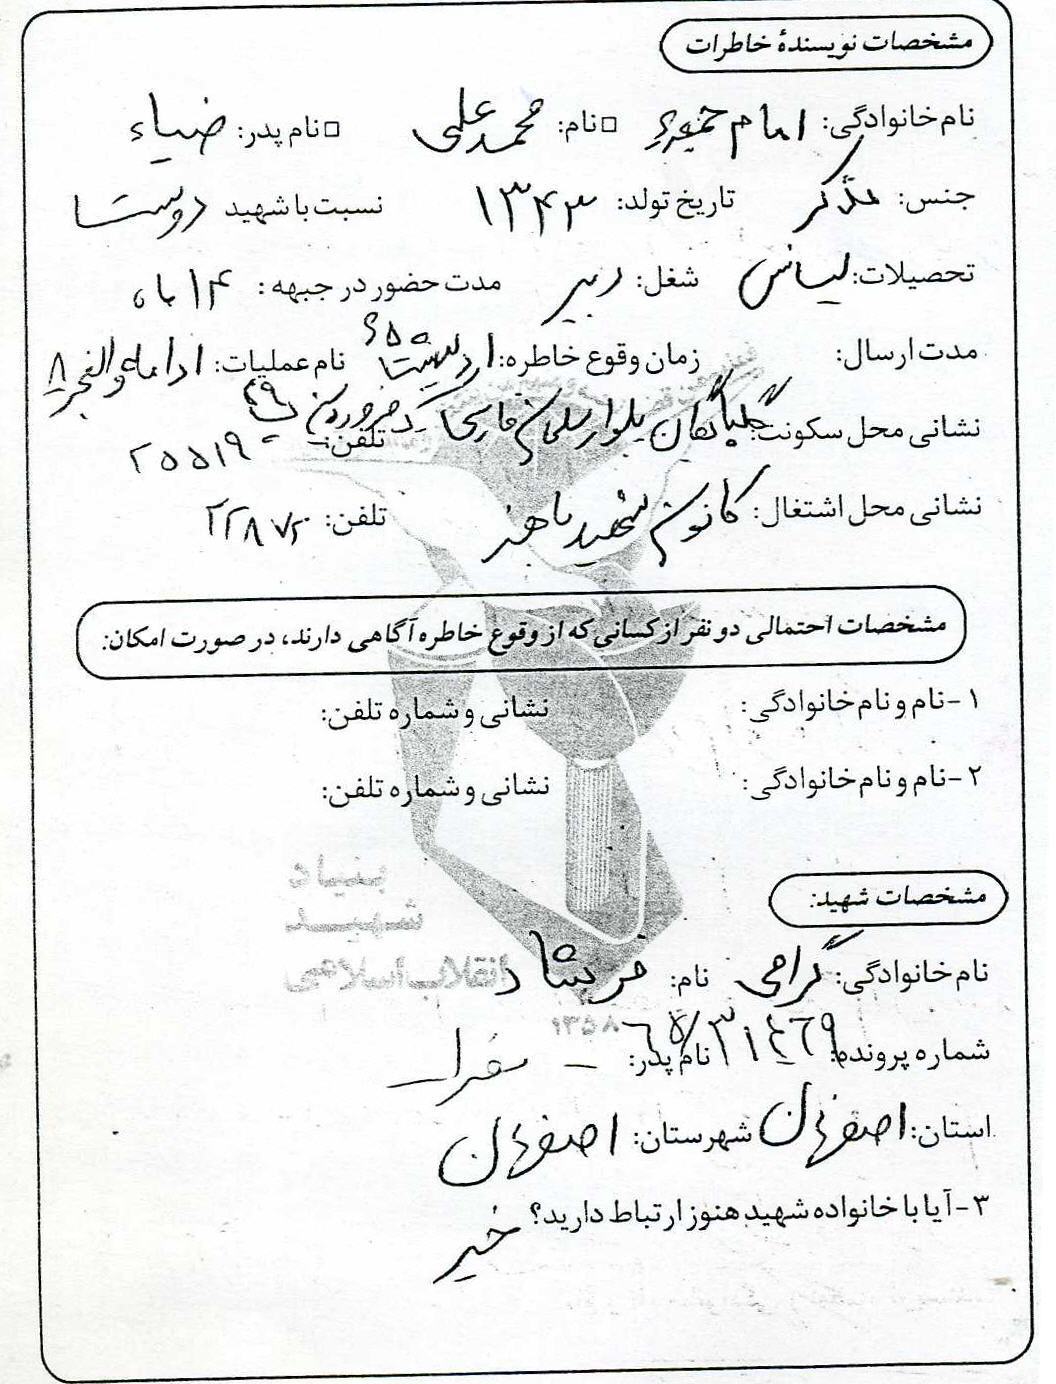 مشخصات نویسندهٔ خاطرات
نام خانوادگی: امام جمعه □ نام: محمد علی □ نام پدر: ضیاء
جنس: مذکر تاریخ تولد: ۱۳۴۳ نسبت با شهید دوست
تحصیلات: لیسانس شغل: دبیر مدت حضور در جبهه: ۱۴ ماه
مدت ارسال: زمان وقوع خاطره: اردیبهشت ۶۵ نام عملیات: ادامه والفجر ۸
نشانی محل سکونت: گلپایگان بلوار سلمان فارسی فروردین ۴۹ تلفن: ۲۵۵۱۹
نشانی محل اشتغال: کانون شهید باهنر تلفن: ۲۲۸۷۲
مشخصات احتمالی دو نفر از کسانی که از وقوع خاطره آگاهی دارند، در صورت امکان:
۱- نام و نام خانوادگی: نشانی و شماره تلفن:
۲- نام و نام خانوادگی: نشانی و شماره تلفن:
بنیاد
شهید
انقلاب اسلامی
۱۳۵۸
مشخصات شهید:
نام خانوادگی: گرامی نام: فرشاد
شماره پرونده: نام پدر:
استان: اصفهان شهرستان: اصفهان
۳- آیا با خانواده شهید هنوز ارتباط دارید؟ خیر